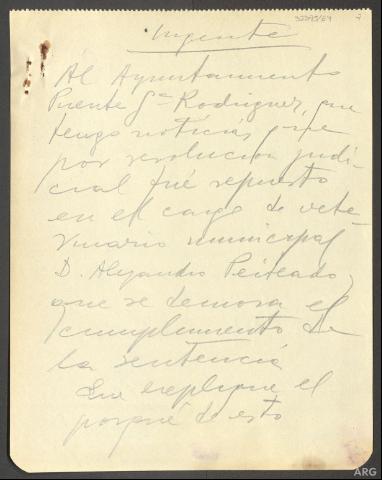 32275/64 2
Urgente
Al Ayuntamiento
Puente Gª Rodríguez, que
tengo noticias que
por resolución judi-
cial fué repuesto
en el cargo de vete-
rinario municipal
D. Alejandro Peiteado,
que se demora el
cumplimiento de
la sentencia
Que explique el
porqué de esto
ARG